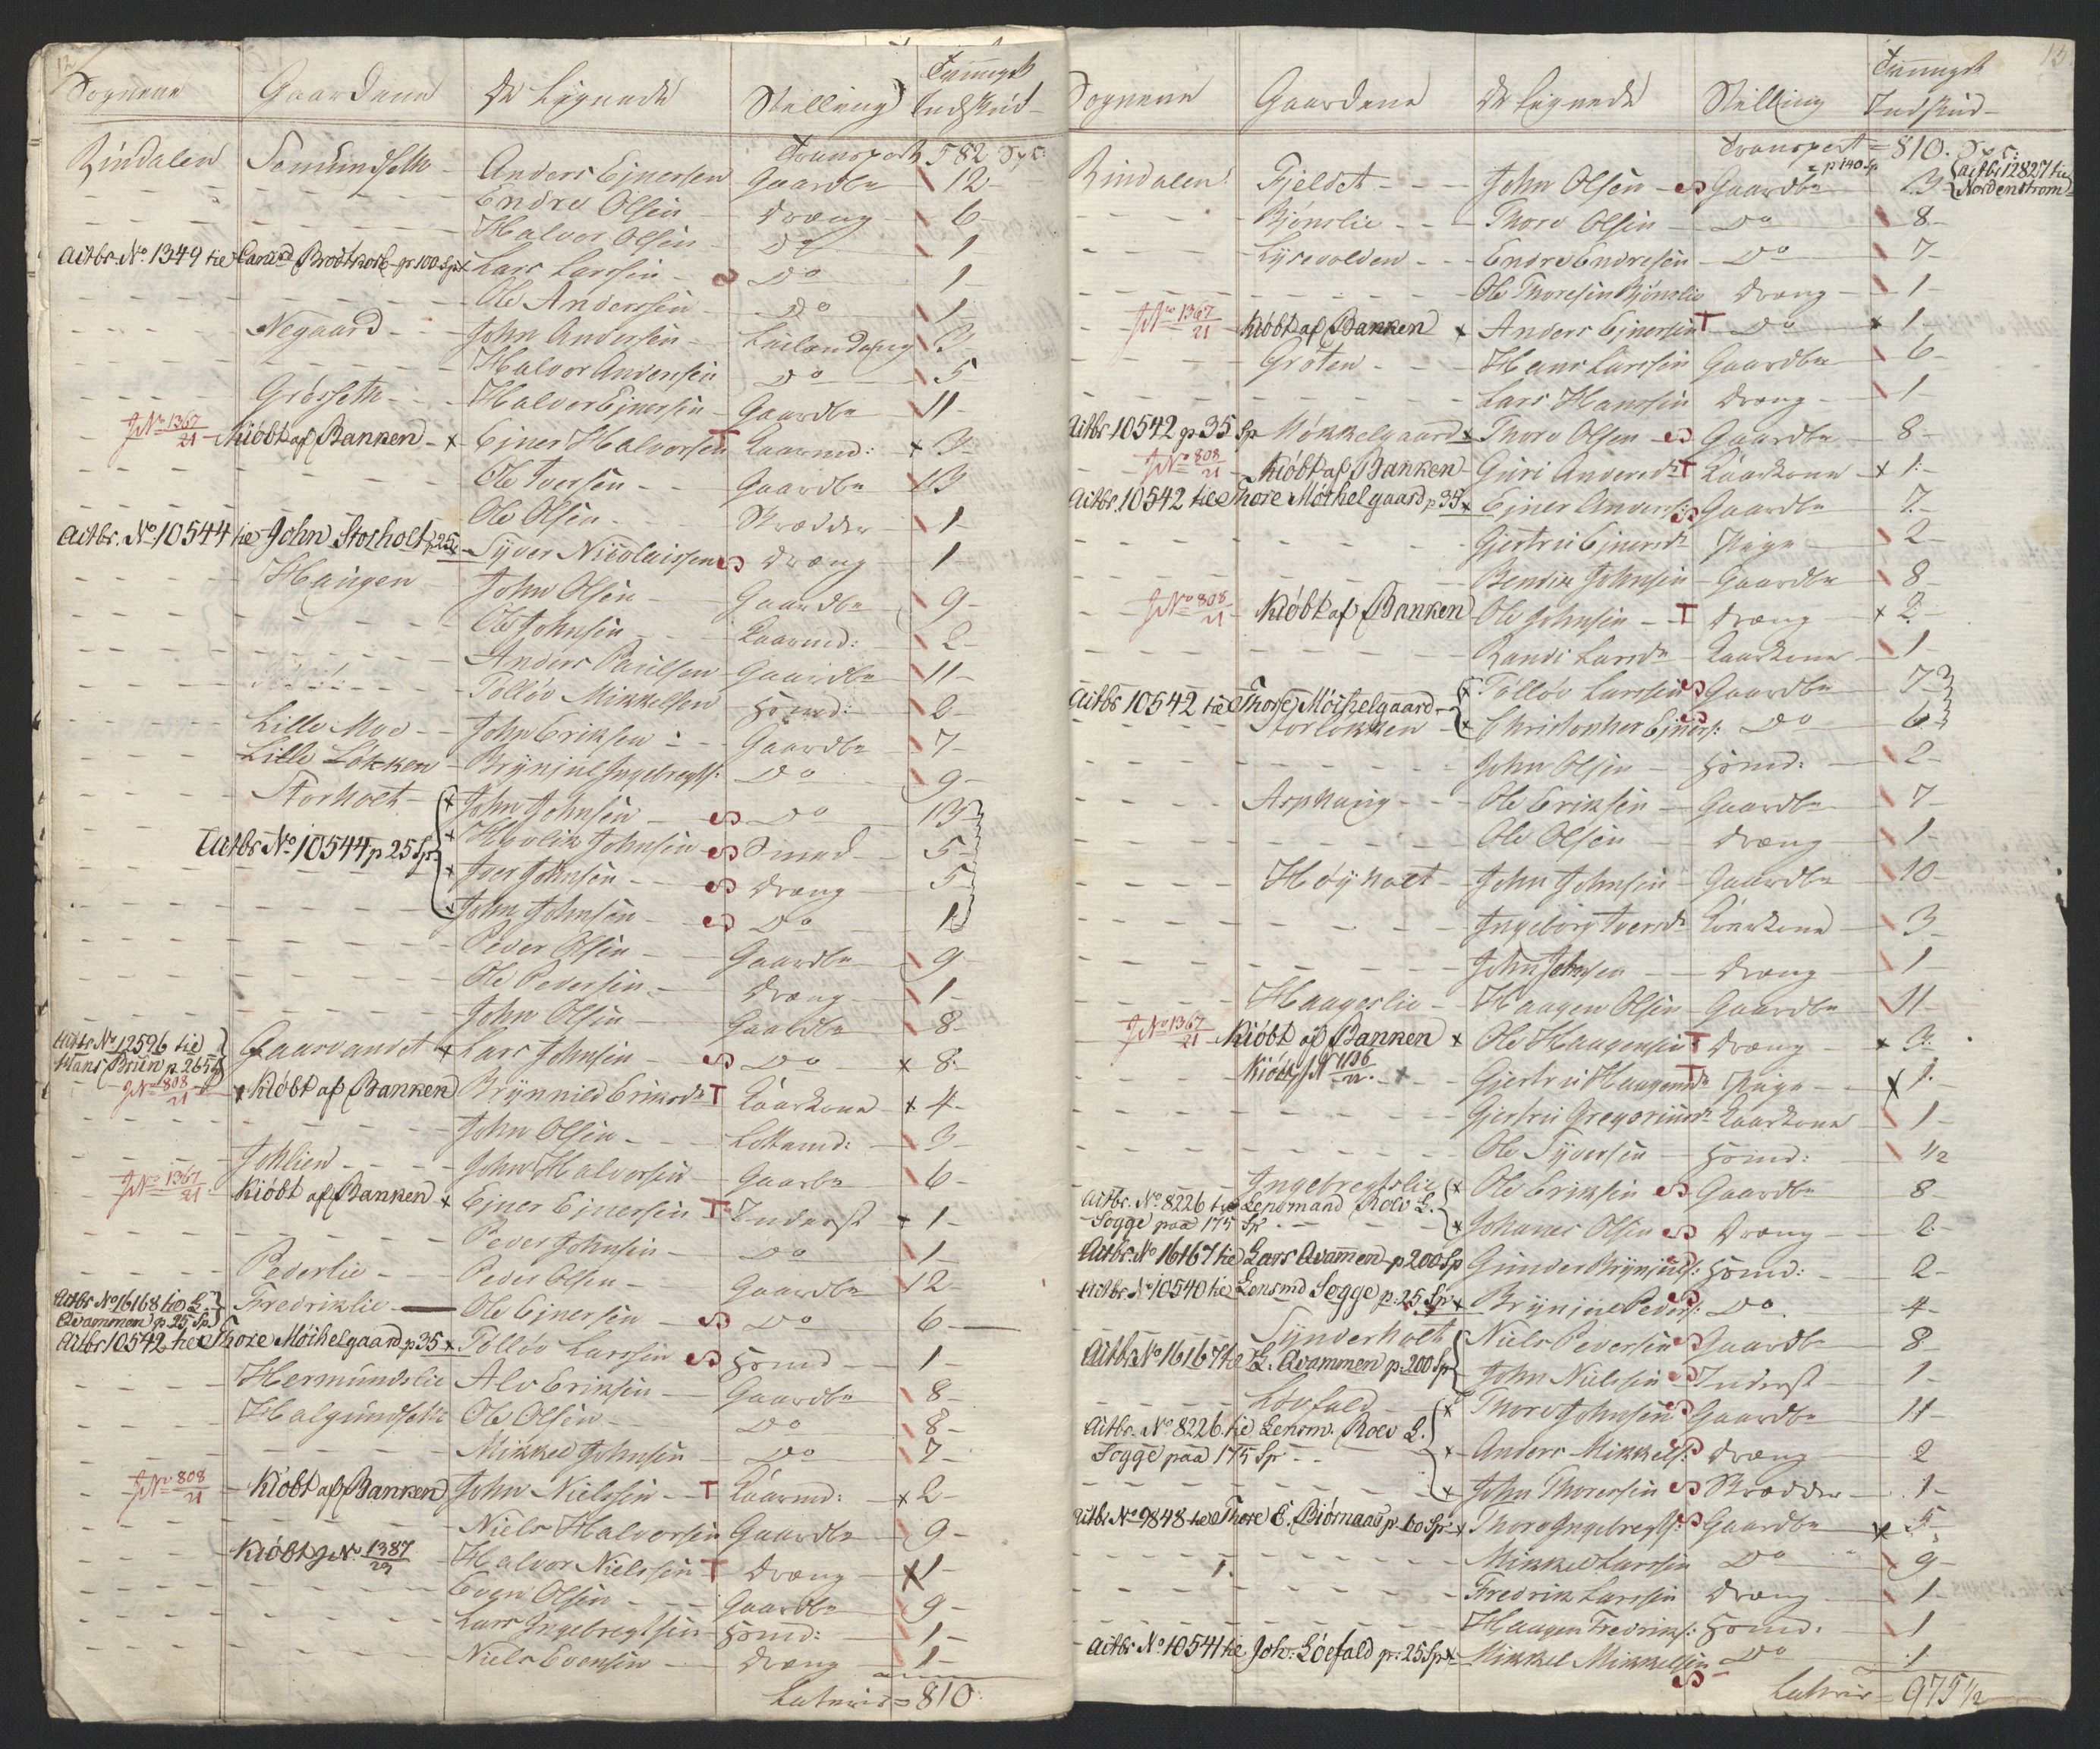 12
Sognene Gaardene De Lignede Stilling Tvungst Indskud
Transport 582 Spd:
Rindalen Semundseth Anders Ejnersen Gaardbr 12
Endre Olsen Dreng 6
Halvor Olsen Do 1
Actbr. No. 1349 til Brodtkorb pr 100 Spd Lars Larsen S Do 1
Ole Anderssen Do 1
Negaard John Andersen 3
Halvor Andersen Do 5
Grösseth Halvor Ejnersen Gaardbr 11
J No 1367/21 Kiöbt af Banken x Ejner Halvorsen T Kaarmd: x 3
Ole Iversen Gaardbr 13
Ole Olsen Skrædder 1
Actbr. No 10544 til John Storholt p 25 Syver Nicolaissen S Dreng 1
Haugen John Olsen Gaardbr 9
Ole Johnsen Kaarmd: 2
Anders Paulsen Gaardbr 11
Tolløv Mikkelsen Hsmd: 2
Lille Moe John Eriksen Gaardbr 7
Lille Løkken Brynjul Ingebregts: Do 9
Storholt x John Johnsen S Do 13
Actbr No 10544 p 25 Sp x Johnsen S Smed 5
x Iver Johnsen S Dreng 5
x John Johnsen S Do 1
Peder Olsen Gaardbr 9
Ole Pedersen Dreng 1
John Olsen Gaardbr 8
Actbr No 12596 til Hans Brun p 265 Sp Gaasvandet x Lars Johnsen S Do x 8
J No 808/21 x Kiöbt af Banken Brynnild Eriksdr T Kaarkone x 4
John Olsen 3
Johlien John Halvorsen Gaarbr 6
J No 1367/21 Kiöbt af Banken x Ejner Ejnersen T Inderst x 1
Peder Johnsen Do 1
Pederlie Peder Olsen Gaardbr 12
Actbr No 16168 til L. Qvammen p 25 Sp Fredriklie Ole Ejnersen S Do 6
Actbr 10542 til Thore Möchelgaard p 35 x Tolløv Larssen S Hsmd 1
Hermundslie Alv Eriksen Gaardbr 8
Halgundseth Ole Olsen Do 8
Mikkel Johnsen Do 7
J No 808/21 Kiöbt af Banken John Nielssen T Kaarmd: x 2
Niels Halvorsen Gaardbr 9
Kiöbt J No 1387/23 Halvor Nielssen T Dreng x 1
Even Olsen Gaardbr 9
Lars Ingebregtsen Hsmd: 1
Niels Evensen Dreng 1
Lateris = 810
13
Sognene Gaardene De Lignede Stilling Tvungst Indskud
Transport = 810. Spd:
Rindalen Fjeldet John Olsen S Gaardbr p 140 Sp 23 Actbr 12827 til Nordenstrøm
Bjönslie Thore Olsen Do 8
Lysevolden Endre Endresen Do 7
Ole Thoresen Bjönslie Dreng 1
J No 1367/21 Kiöbt af Banken x Anders Ejnersen T Do x 1
Gröten Hans Larssen Gaardbr 6
Lars Hanssen Dreng 1
Actbr 10542 p 35 Sp Møkkelgaard x Thore Olsen S Gaardbr 8
J No 808/21 Kiöbt af Banken Guri Andersdr T Kaarkone x 1
Actbr. 10542 til Thore Möchelgaard p 35 x Ejner Anders: S Gaardbr 7
Gjertru Ejnersdr Pige 2
Bendix Johnsen Gaardbr 8
J No 808/21 Kiöbt af Banken Ole Johnsen T Dreng x 2
Randi Larsdr Kaarkone 1
Actbr 10542 til Thore Möchelgaard x Tølløv Larssen S Gaardbr 7
Storløkken x Christopher Ejners: S Do 6
John Olsen Hsmd: 2
Asphaug Ole Eriksen Gaardbr 7
Ole Olsen Dreng 1
Höyholt John Johnsen Gaardbr 10
Ingeborg Iversdr Kaarkone 3
John Johnsen Dreng 1
Haageslie Haagen Olsen Gaardbr 11
J No 1367/21 Kiöbt af Banken x Ole Haagensen T Dreng x 3
Kiöbt J N 1186/22 x Gjertru Haagensdr T Pige x 1
Gjertru Gregoriusdr Kaarkone 1
Ole Syversen Hsmd: 1/2
Ingebregtslie x Ole Eriksen S Gaardbr 8
Actbr. No. 8226 til Lensmand Roev L. Sogge paa 175 Sp x Johannes Olsen S Dreng 2
Actbr. No 16167 til Lars Qvammen p 200 Sp Gunder Brynjuls: Hsmd: 2
Actbr No 10540 til Lensmd Sogge p. 25 Sp x Brynjul Peders: S Do 4
Synderholt Niels Pedersen S Gaardbr 8
Actbr No 16167 til L. Qvammen p. 200 Sp John Nielssen S Inderst 1
Løvfald x Thore Johnsen S Gaardbr 11
Actbr. No 8226 til Lensm. Roev L. Sogge paa 175 Sp x Anders Mikkels: S Dreng 2
x John Thoresen S Skrædder 1
Actbr No 9848 til Thore E. Biørnaas p. 60 Sp x Thore Ingebregts: S Gaardbr x 5
1. Mikkel Larssen Do 9
Fredrik Larssen Dreng 1
Haagen Fredriks: Hsmd: 1
Actbr No 10541 til Joh: Löefald pr: 25 Sp x Mikkel Mikkelsen S Do 1
Lateris = 975 1/2